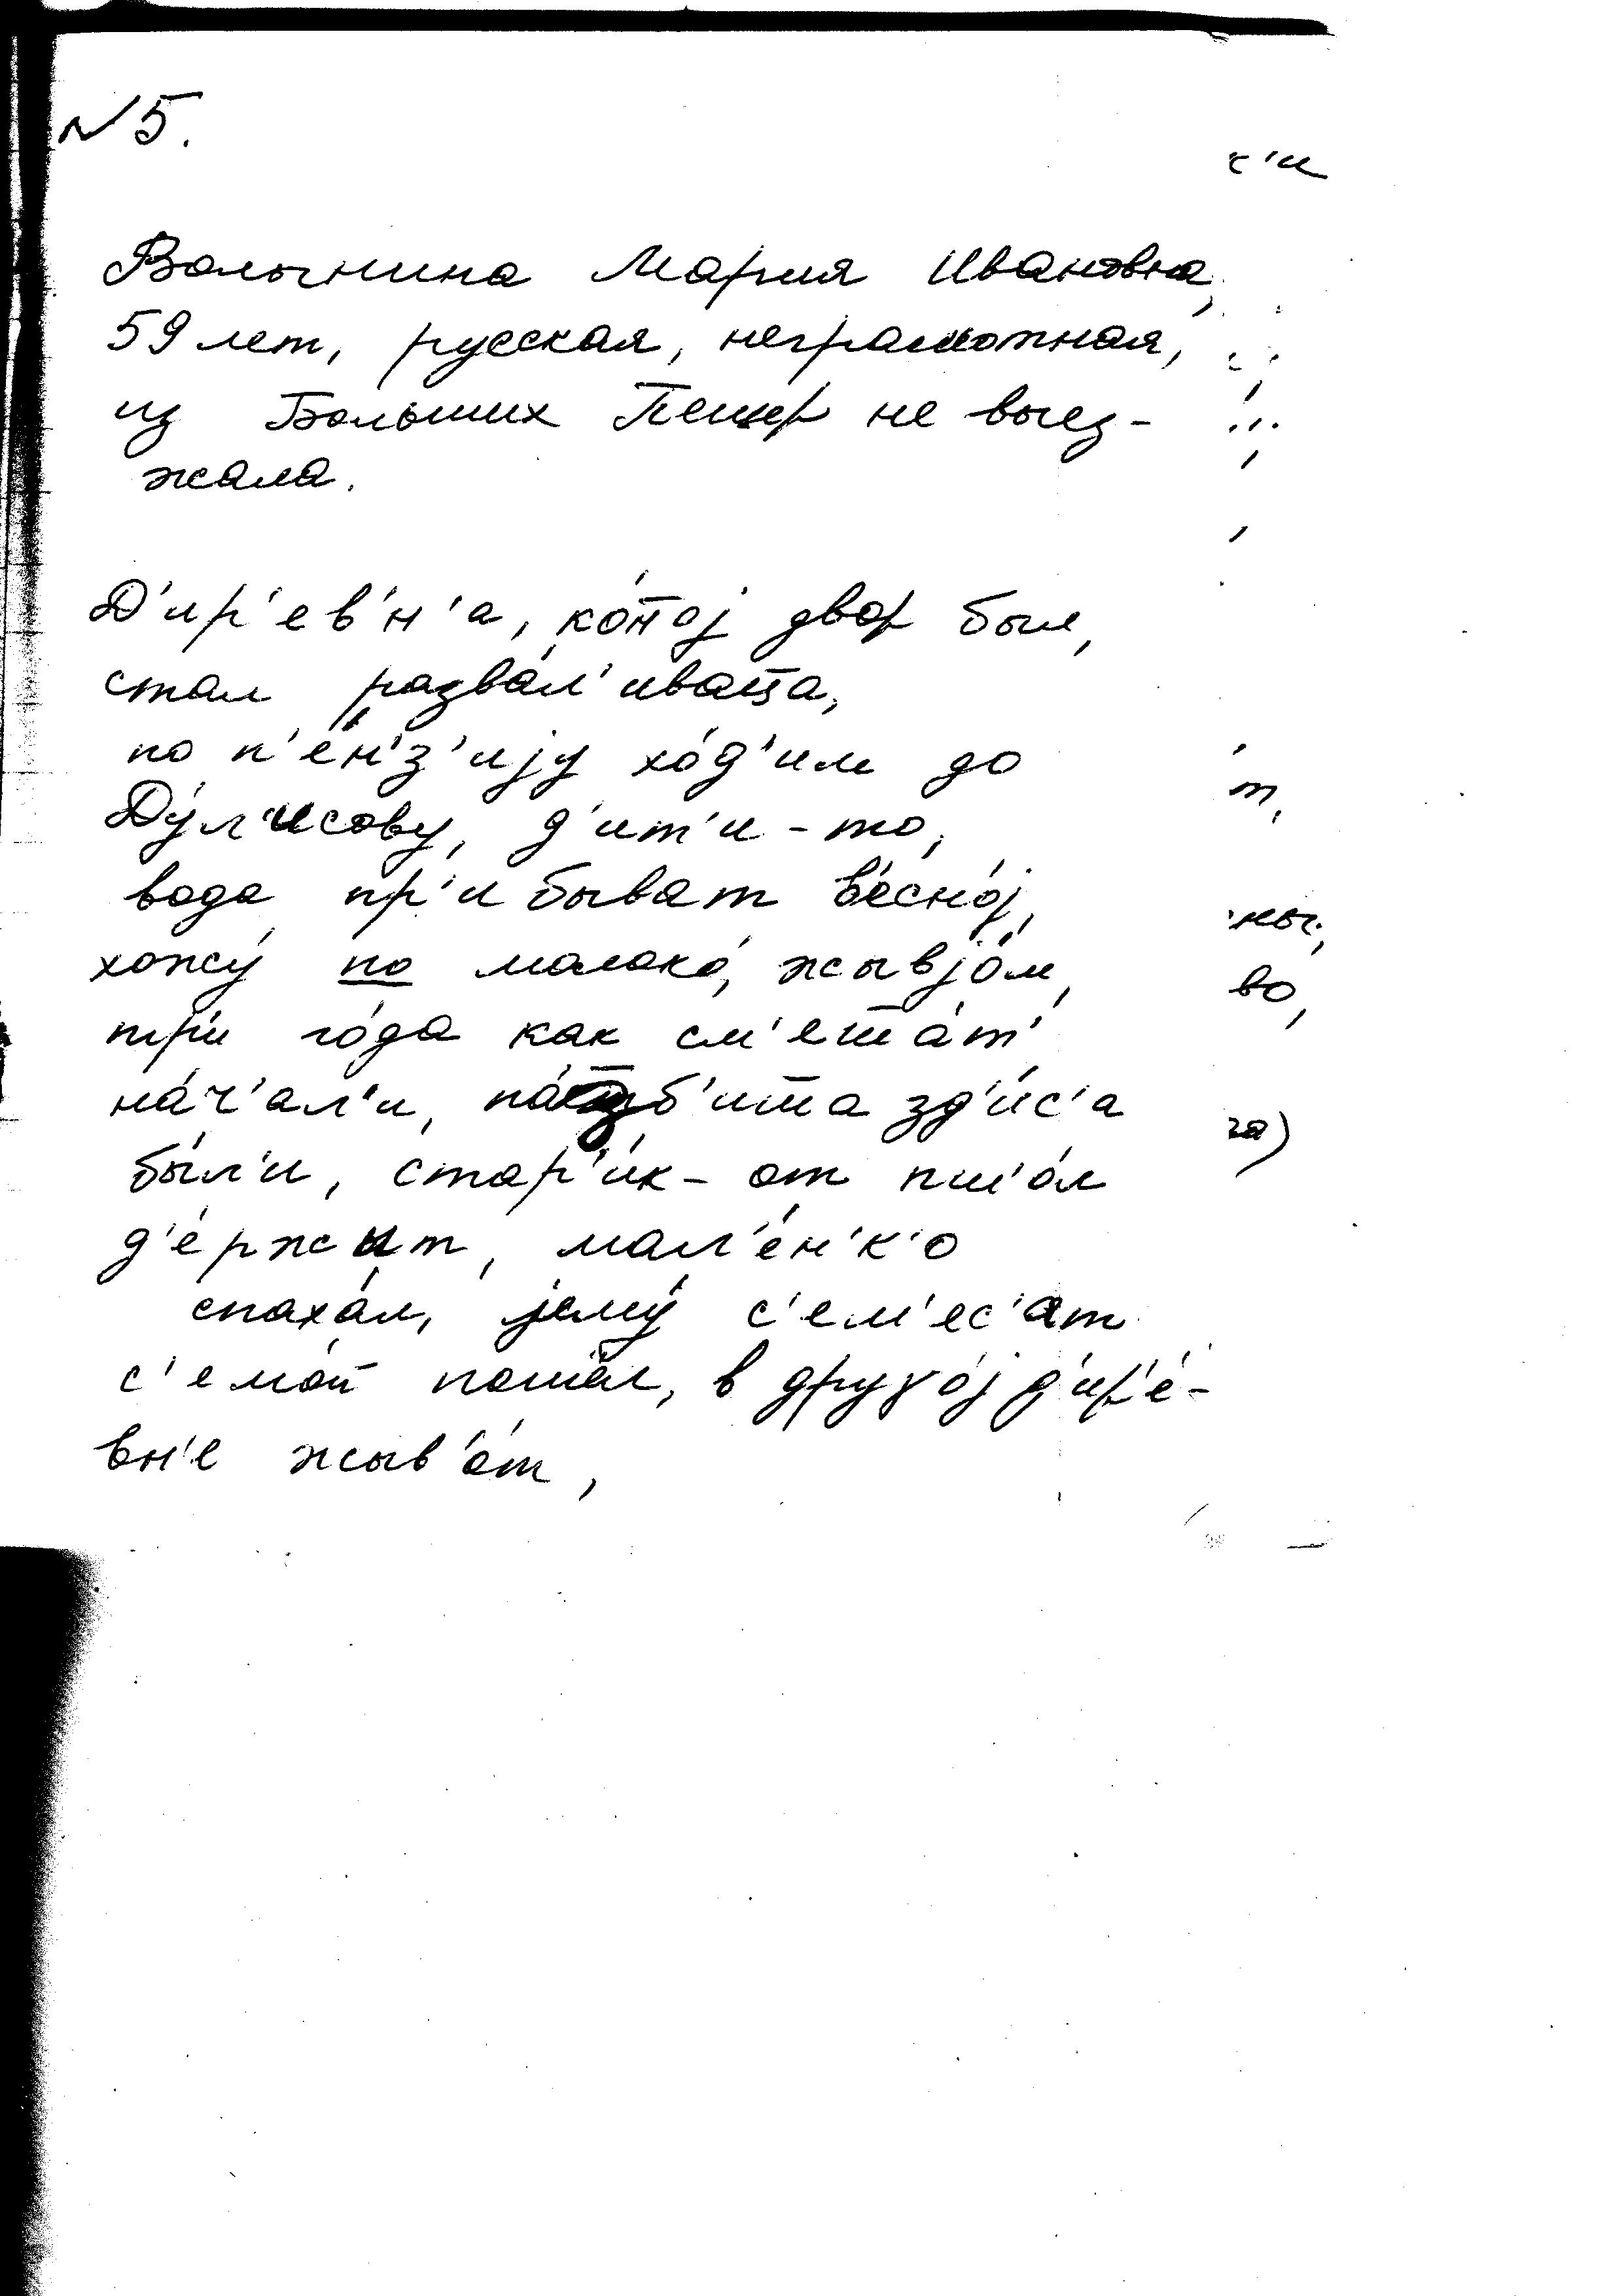 №5.
с'и
Волычнина Мария Ивановна,
59 лет, русская, неграмотная,
из Больших Пещер не выез-
жала.
Д'ир'ев'н'а, ко́т̄ој двор был,
стал разва́л'иват̄а,
по п'е́н'з'ију хо́д'им до
Ду́л'исову, д'ит'и-то,
вода пр'ибыват в'есно́ј,
хожу́ по молоко́, жывјо́м,
тр'и го́да как см'еша́т'
на́ч'ал'и, зд'и́с'а
бы́л'и, стар'и́к-от пш'о́л
д'е́ржит, мал'е́н'к'о
спаха́л, јему́ с'ем'ес'ат
с'емо́й пошо́л, в друго́ј д'ир'е́-
вн'е жыв'о́т,
т,
ны,
во,
га)